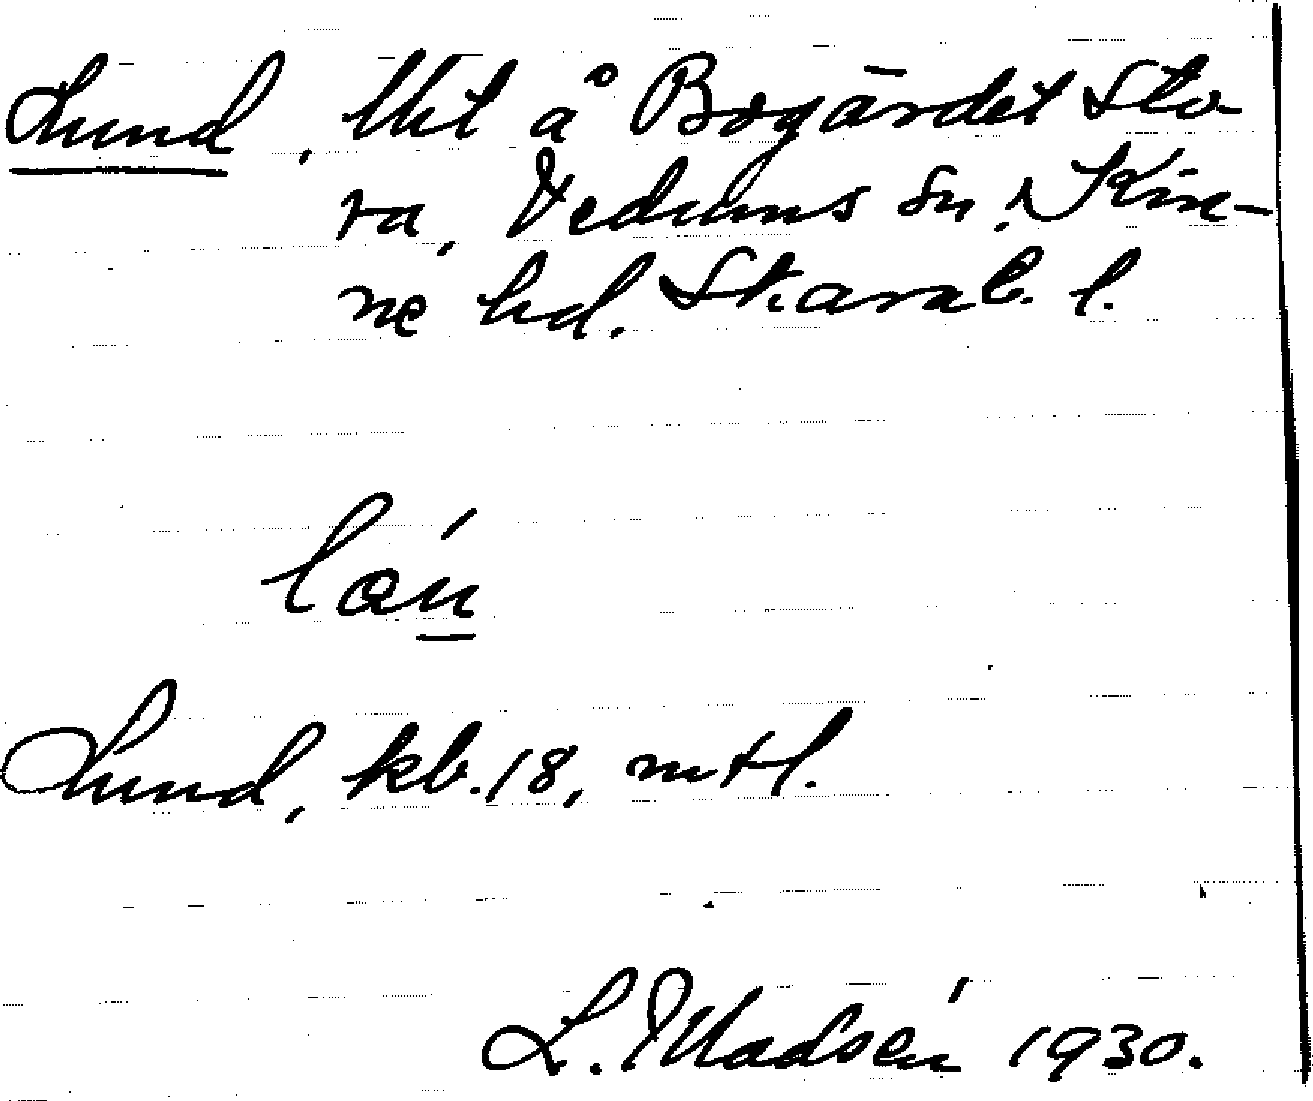 Lund, Utt å Bogärdet Sto-
ra, Vedums sn, Kin-
ne hd. Skarab. l.
Lund, kb. 18, mtl.
L. Madsén 1930.